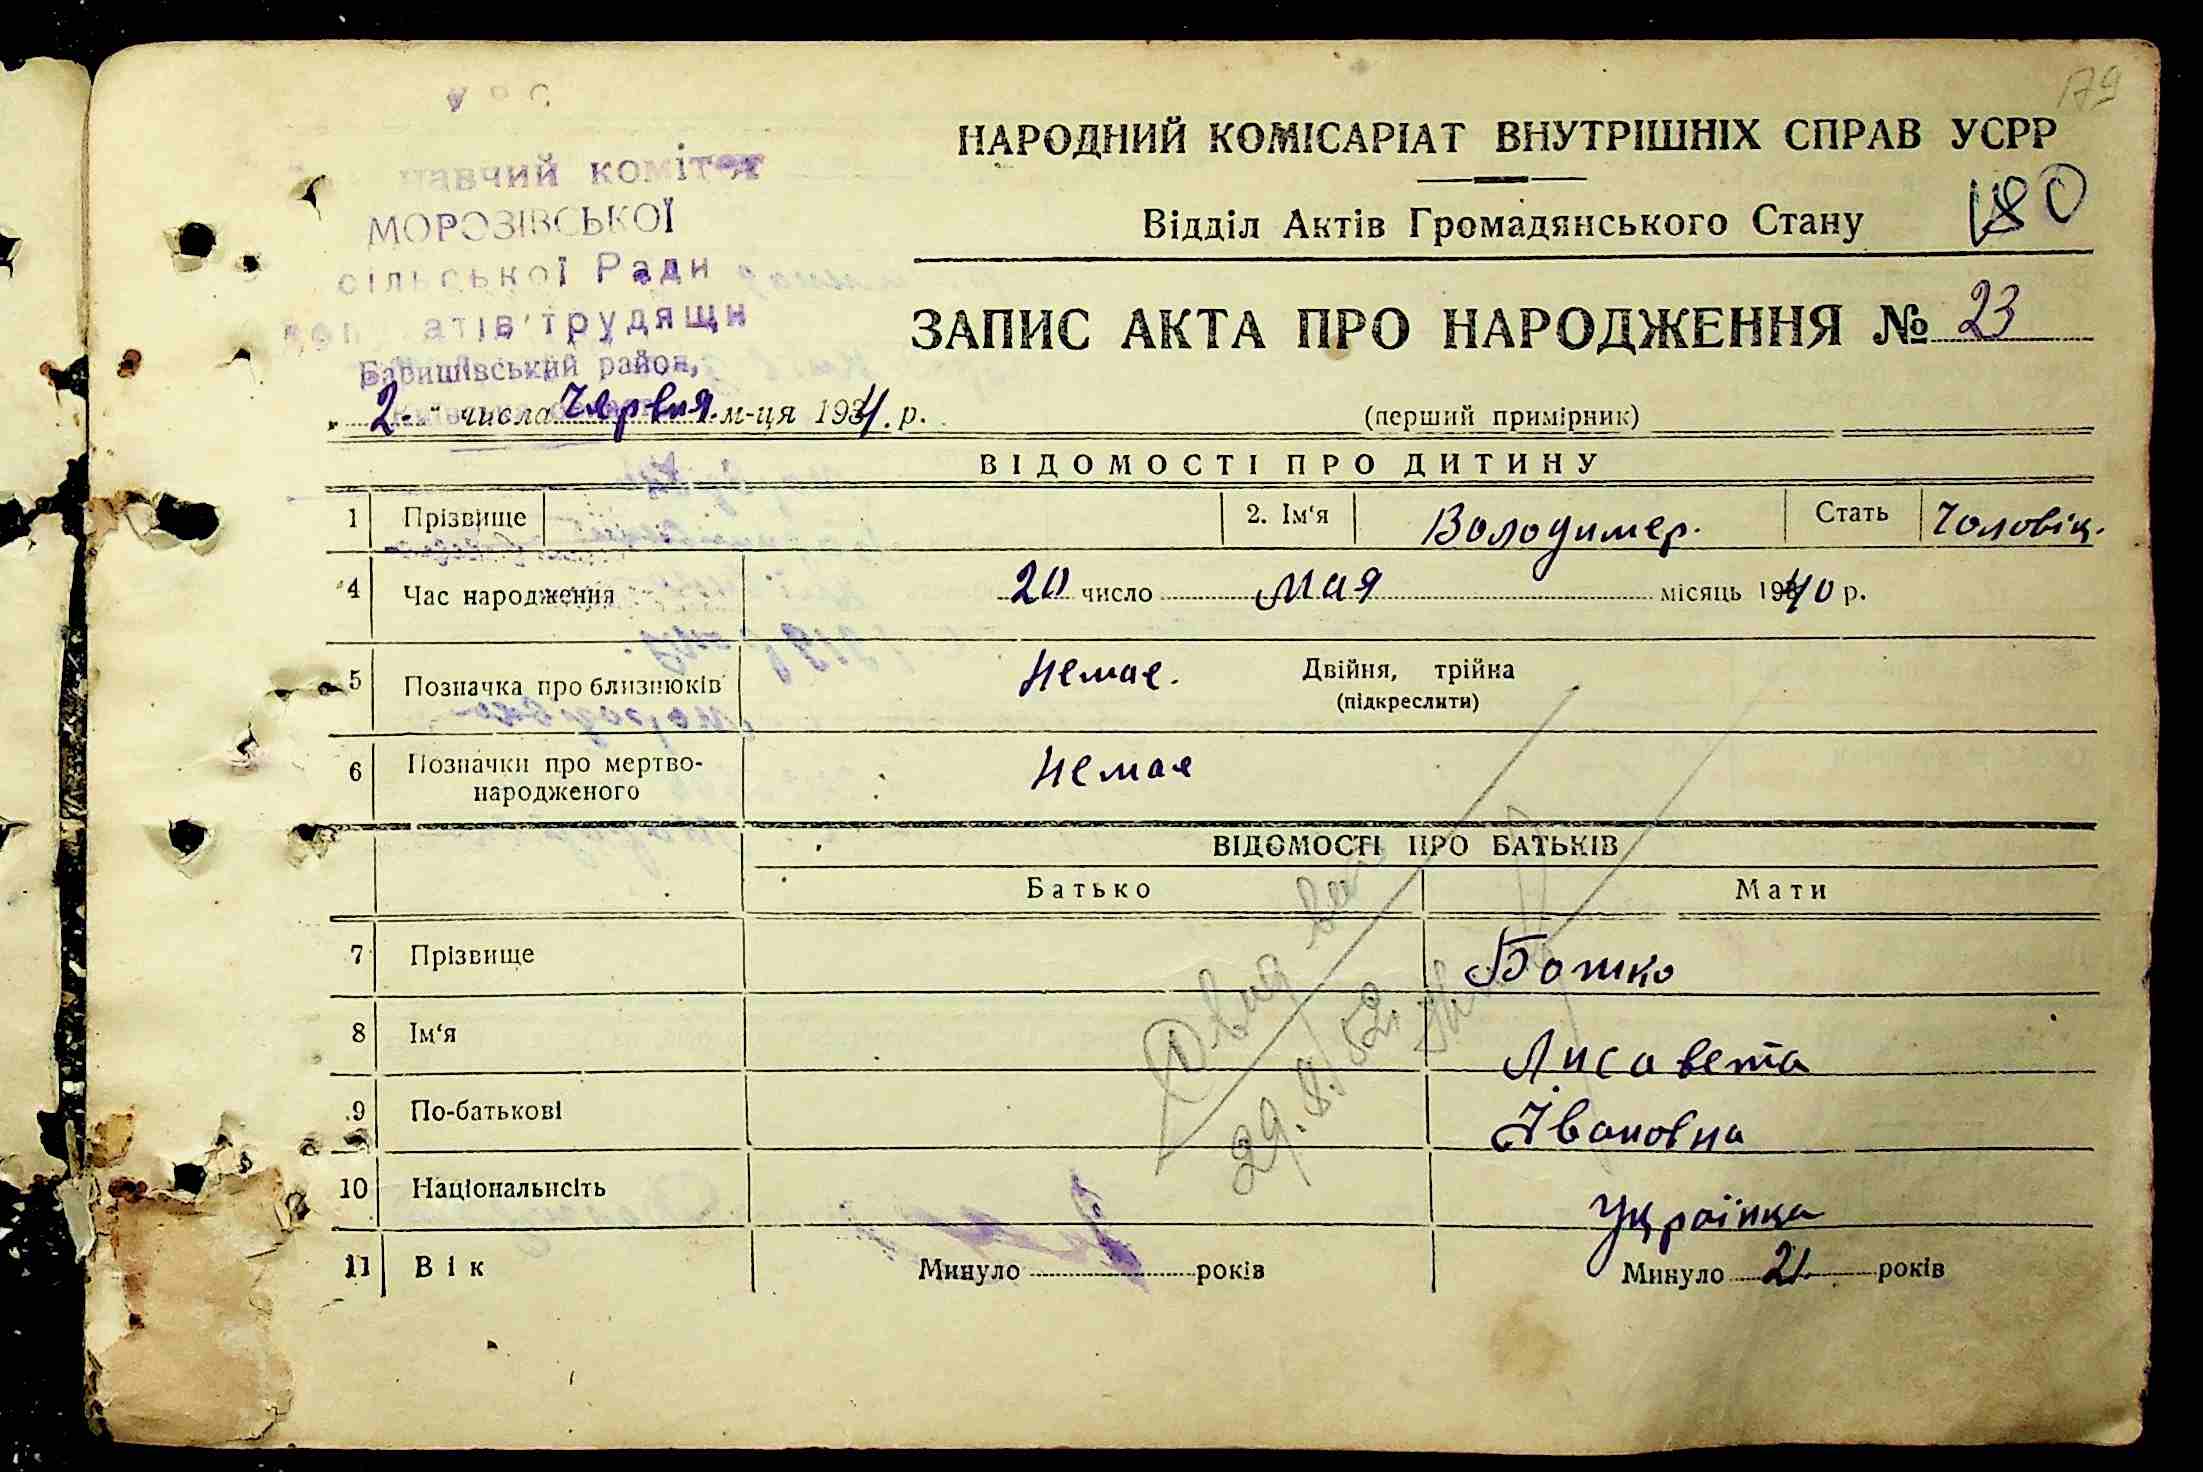 179
НАРОДНИЙ КОМІСАРІАТ ВНУТРІШНІХ СПРАВ УСРР
Відділ Актів Громадянського Стану
180
комітет
МОРОЗІВСЬКОЇ
сільської Ради
трудящи
Баришівський район,
ЗАПИС АКТА ПРО НАРОДЖЕННЯ № 23
„ 2. " числа Червня м-ця 1941. р.
(перший примірник)
ВІДОМОСТІ ПРО ДИТИНУ
1 Прізвище 2. Ім'я Володимер. Стать Чоловіч.
4 Час народження 20 число Мая місяць 1940 р.
5 Позначка про близнюків Немає. Двійня, трійна
(підкреслити)
6 Позначки про мертво-
народженого Немає
ВІДОМОСТІ ПРО БАТЬКІВ
Батько Мати
7 Прізвище Божко
8 Ім'я Лисавета
9 По-батькові Івановна
10 Національнсіть Українка
11 Вік Минуло років Минуло 21. років
29.8.52